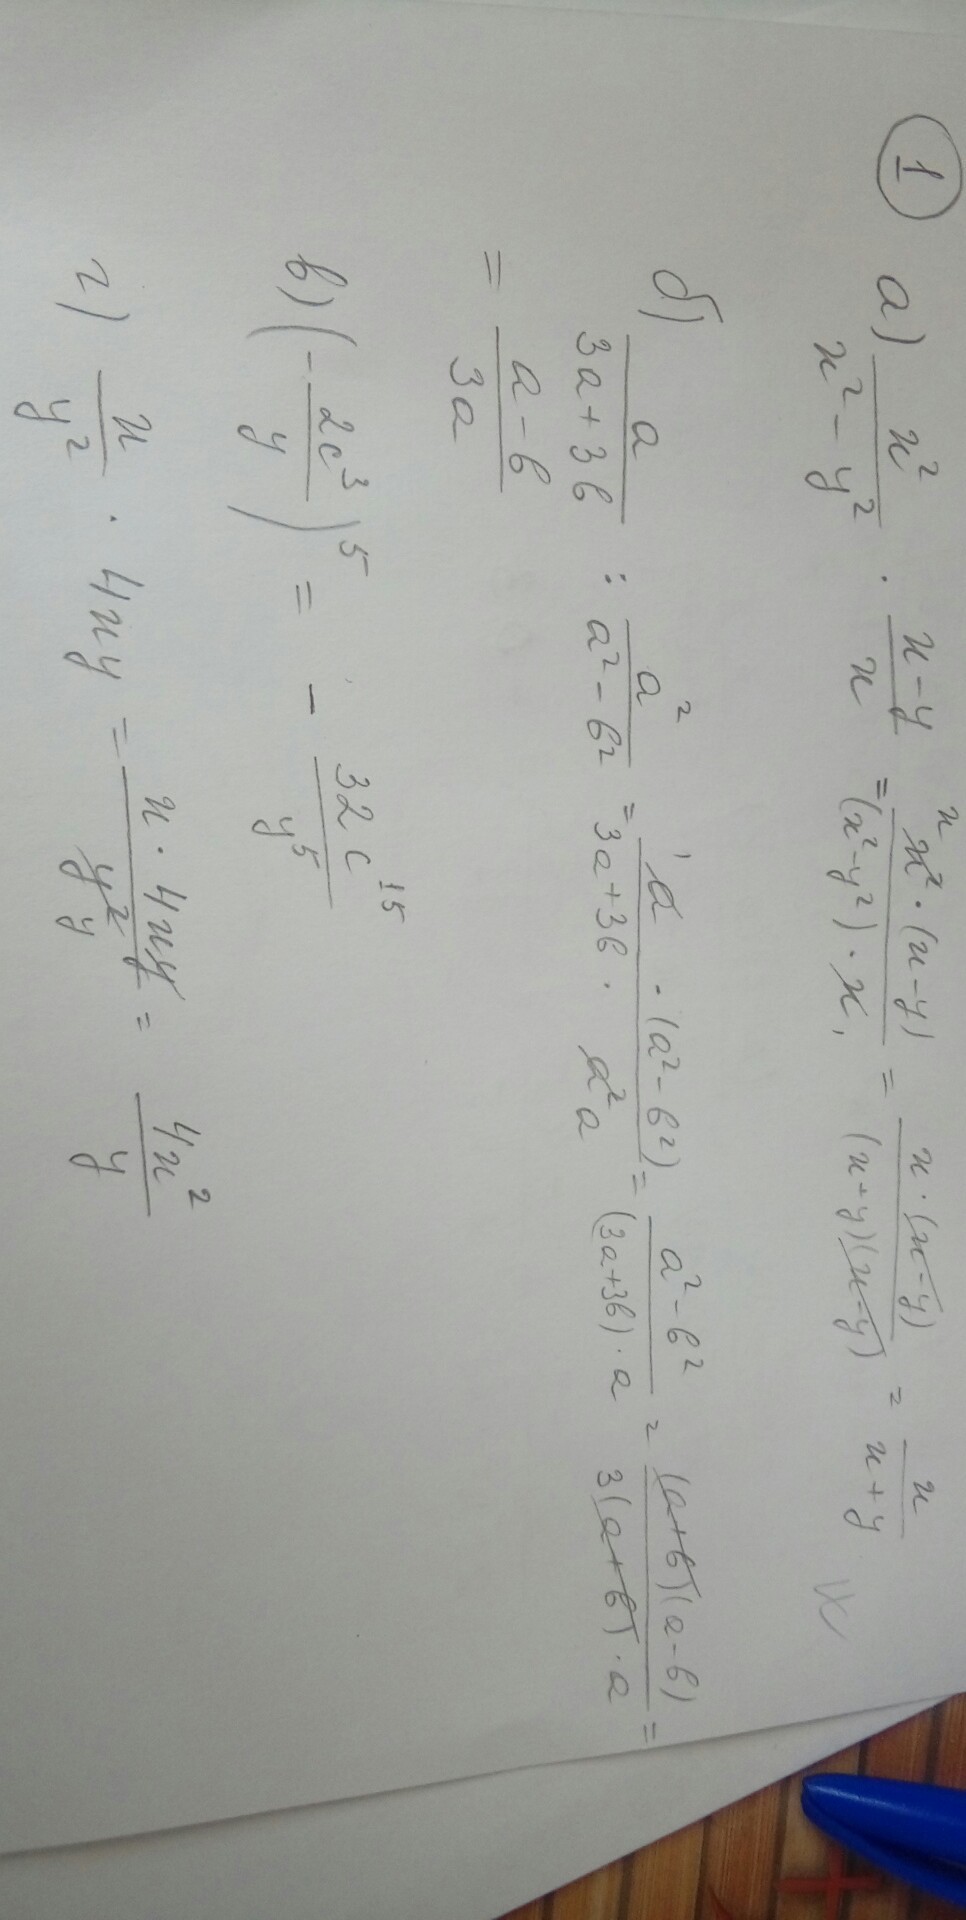 1 а) x²/(x² - y²) · (x - y)/x = x x² · (x - y)/((x² - y²) · x,) = x · (x - y)/((x + y)(x - y)) = x/(x + y)
б) a/(3a + 3b) : a²/(a² - b²) = 1 a · (a² - b²)/(3a + 3b · a² a) = (a² - b²)/((3a + 3b) · a) = (a + b)(a - b)/(3(a + b) · a) =
= (a - b)/(3a)
в) (- 2c³/y)⁵ = - 32c¹⁵/y⁵
г) x/y² · 4xy = x · 4xy/(y² y) = 4x²/y